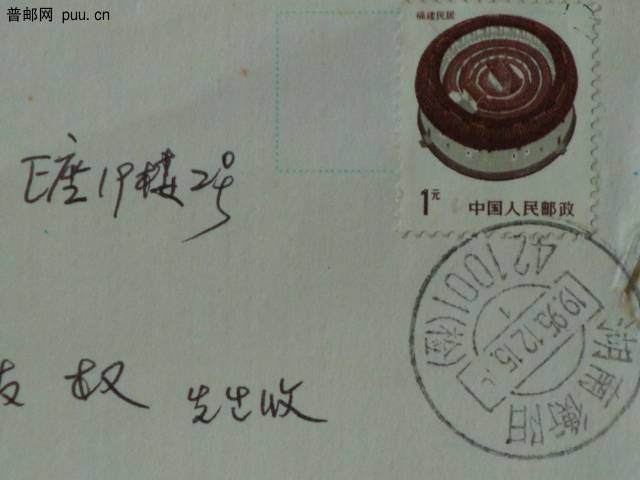 普邮网 puu.cn
福建民居
1元 中国人民邮政
E座19楼2号
权 先生收
421001(检)
1995.12.15.
湖南衡阳